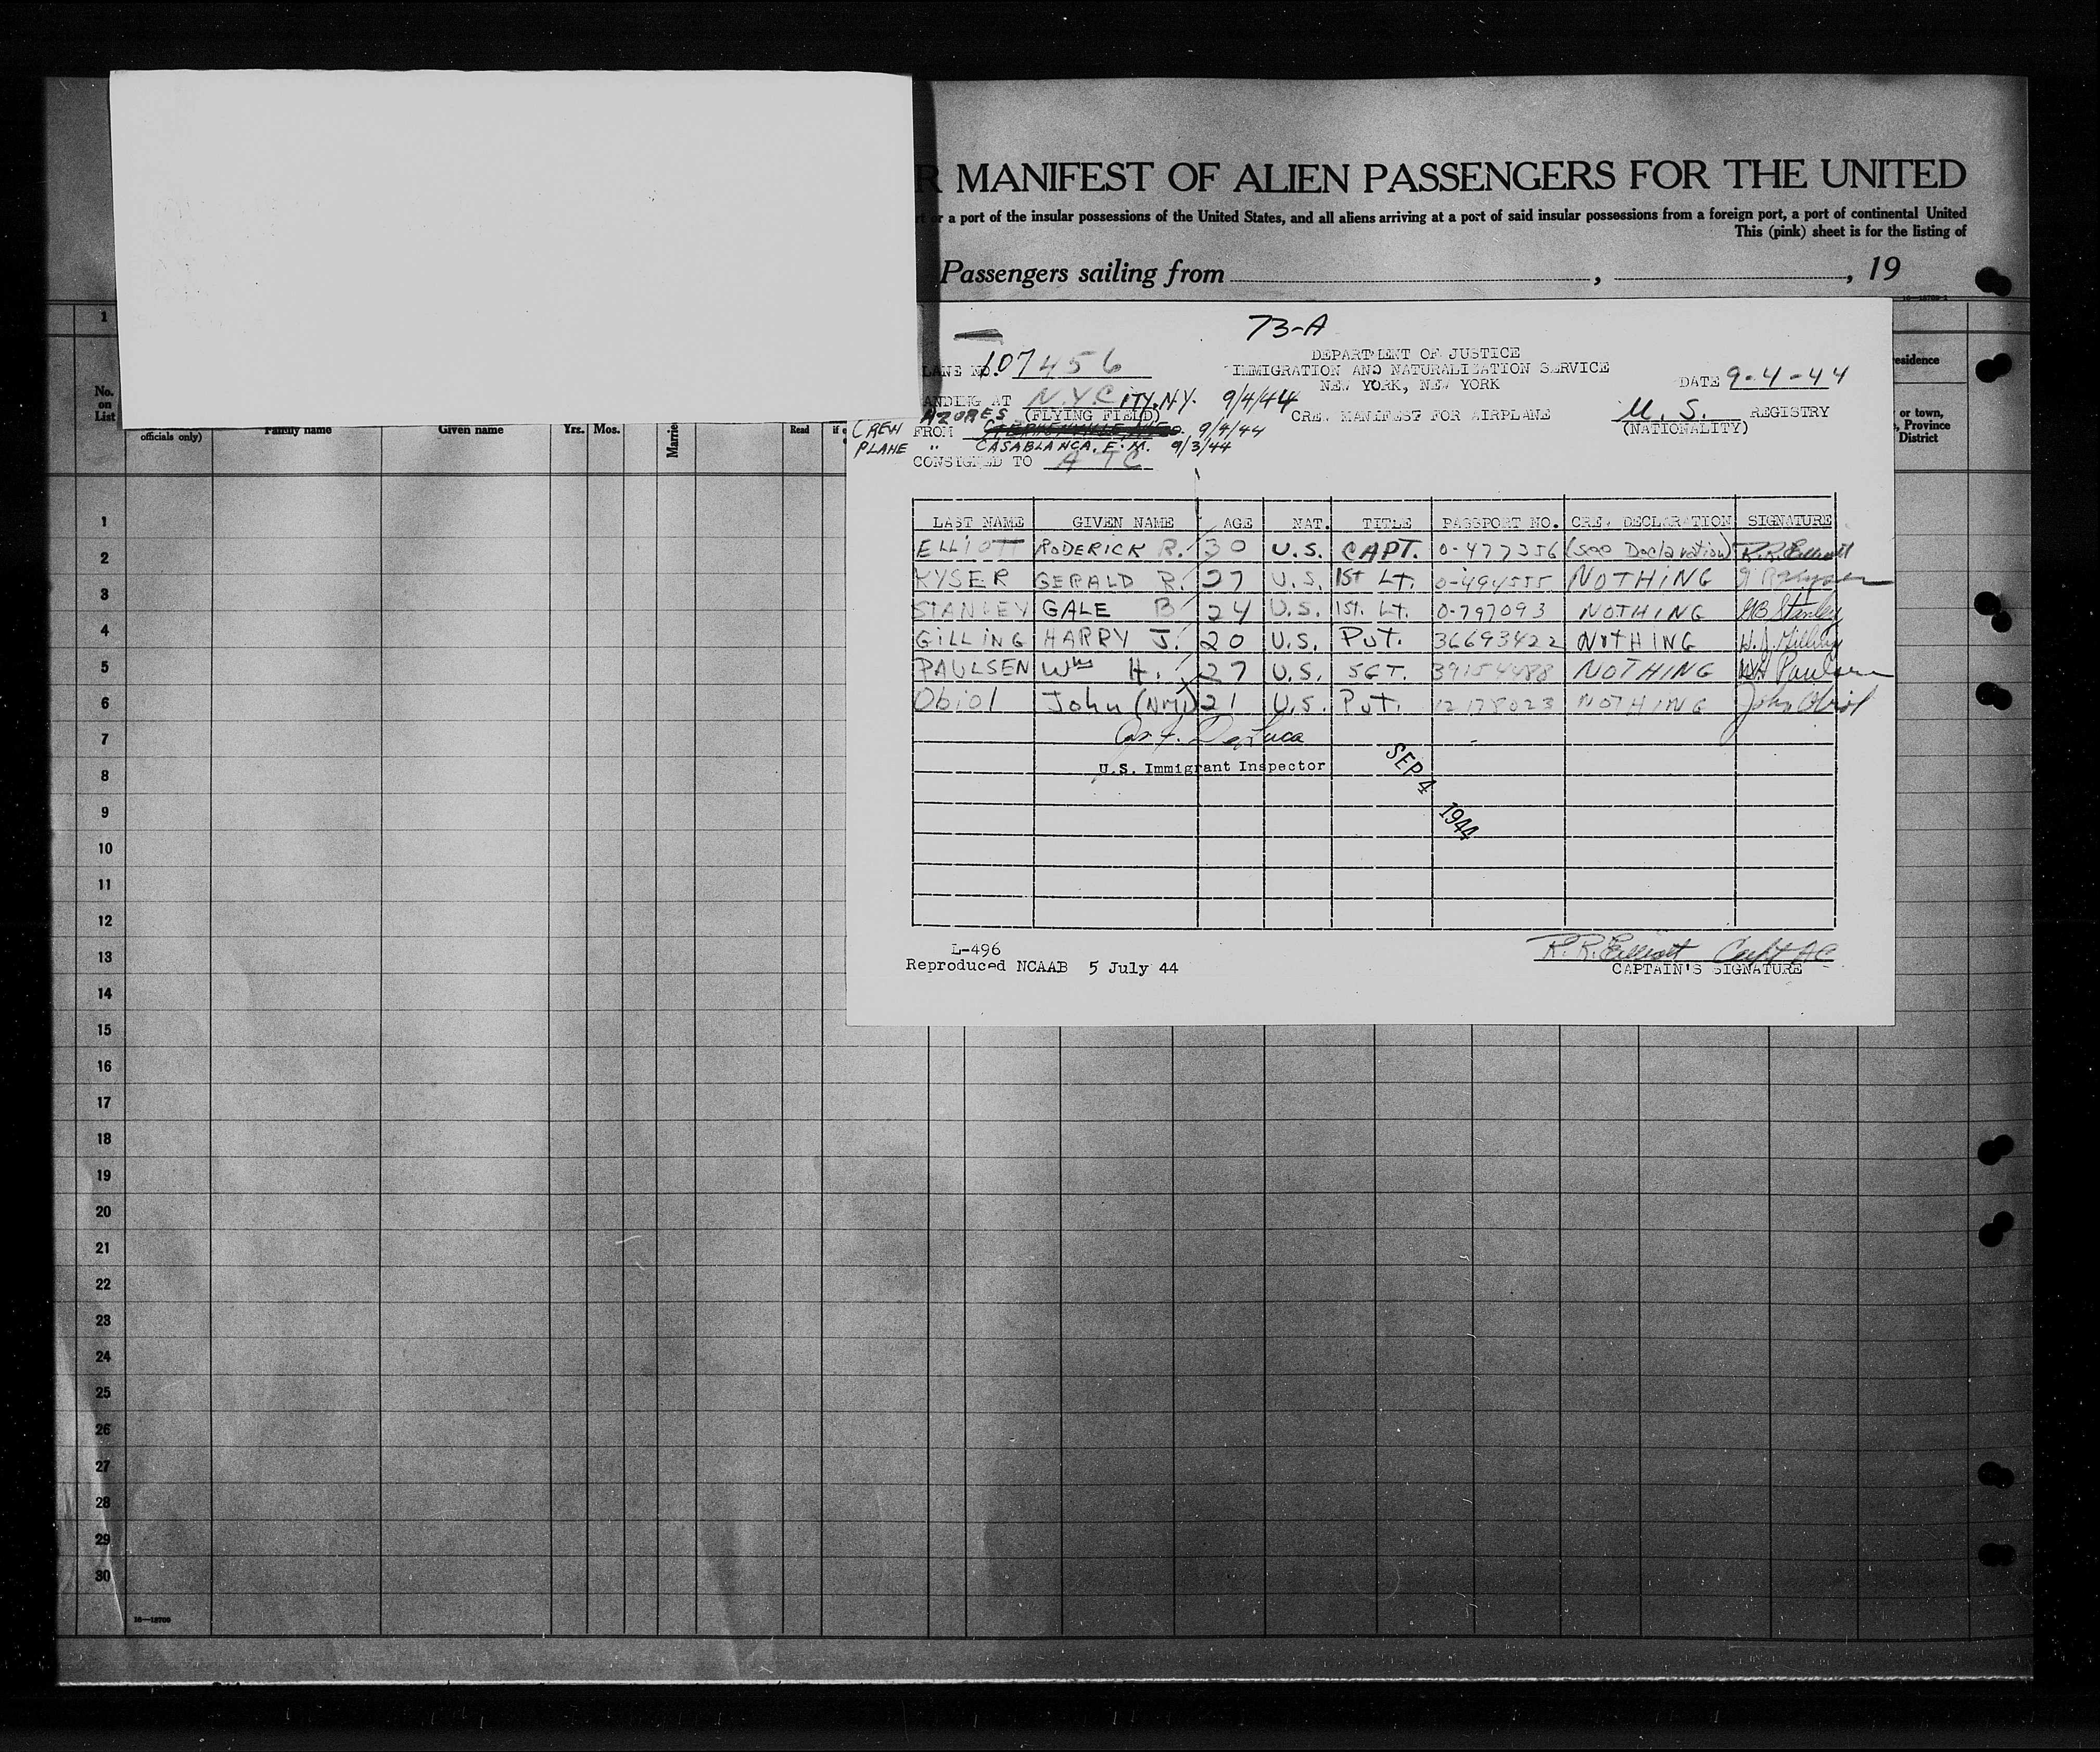 R MANIFEST OF ALIEN PASSENGERS FOR THE UNITED
rt or a port of the insular possessions of the United States, and all aliens arriving at a port of said insular possessions from a foreign port, a port of continental United
This (pink) sheet is for the listing of
Passengers sailing from , , 19
16—18709-1
1
No.
on
List
officials only)
Family name
Given name
Yrs. Mos.
Marrie
Read
if
esidence
or town,
, Province
District
73-A
DEPARTMENT OF JUSTICE
IMMIGRATION AND NATURALIZATION SERVICE
NEW YORK, NEW YORK
LANE NO. 107456
DATE 9-4-44
ANDING AT N.Y.CITY.N.Y. 9/4/44
(FLYING FIELD)
CREW MANIFEST FOR AIRPLANE
U. S. REGISTRY
(NATIONALITY)
AZORES
CREW FROM 9/4/44
PLANE " CASABLANCA, F.M. 9/3/44
CONSIGNED TO A T C
LAST NAME GIVEN NAME AGE NAT. TITLE PASSPORT NO. CREW DECLARATION SIGNATURE
ELLIOTT RODERICK R. 30 U.S. CAPT. O-477356 (See Declaration) R.R. Elliott
KYSER GERALD R. 27 U.S. 1ST LT. O-494555 NOTHING G R Kyser
STANLEY GALE B 24 U.S. 1ST. LT. O-797093 NOTHING GB Stanley
GILLING HARRY J. 20 U.S. PVT. 36693422 NOTHING H. J. Gilling
PAULSEN Wm H. 27 U.S. SGT. 39154488 NOTHING WH Paulsen
Obiol John (NMI) 21 U.S. PVT. 12178023 NOTHING John Obiol
De Luca
U.S. Immigrant Inspector
SEP 4 1944
L-496
Reproduced NCAAB 5 July 44
R. R. Elliott Capt AC
CAPTAIN'S SIGNATURE
1
2
3
4
5
6
7
8
9
10
11
12
13
14
15
16
17
18
19
20
21
22
23
24
25
26
27
28
29
30
16—18709